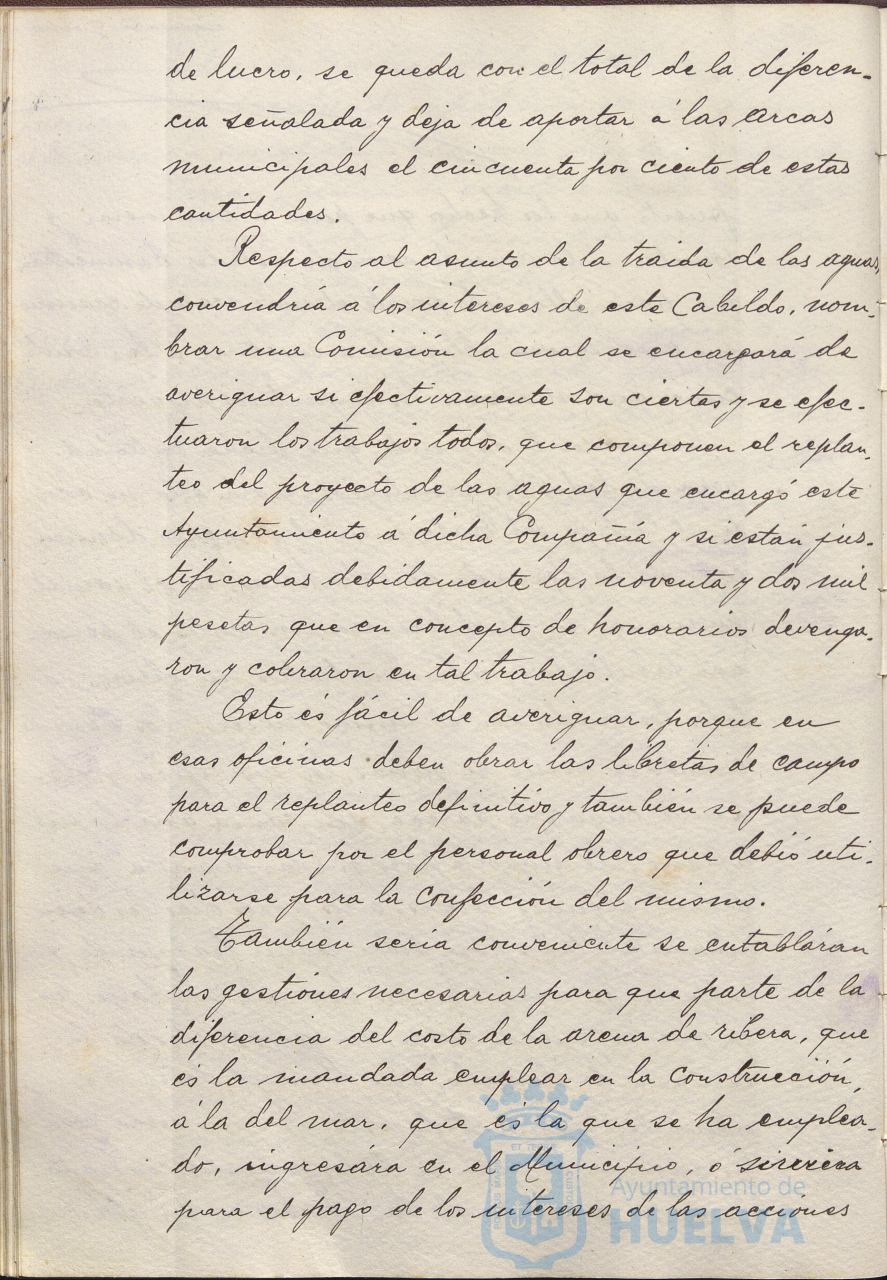 de lucro, se queda con el total de la diferen-
cia señalada y deja de aportar á las arcas
municipales el cincuenta por ciento de estas
cantidades.
Respecto al asunto de la traida de las aguas,
convendría á los intereses de este Cabildo, nom-
brar una Comisión la cual se encargará de
averiguar si efectivamente son ciertas y se efec-
tuaron los trabajos todos, que componen el replan-
teo del proyecto de las aguas que encargó este
Ayuntamiento á dicha Compañía y si están jus-
tificadas debidamente las noventa y dos mil
pesetas que en concepto de honorarios devenga-
ron y cobraron en tal trabajo.
Esto és fácil de averiguar, porque en
esas oficinas deben obrar las libretas de campo
para el replanteo definitivo y también se puede
comprobar por el personal obrero que debió uti-
lizarse para la confección del mismo.
También sería conveniente se entabláran
las gestiones necesarias para que parte de la
diferencia del costo de la arena de ribera, que
és la mandada emplear en la construcción,
á la del mar, que és la que se ha emplea-
do, ingresára en el Municipio, ó sirviera
para el pago de los intereses de las acciones
Ayuntamiento de
HUELVA